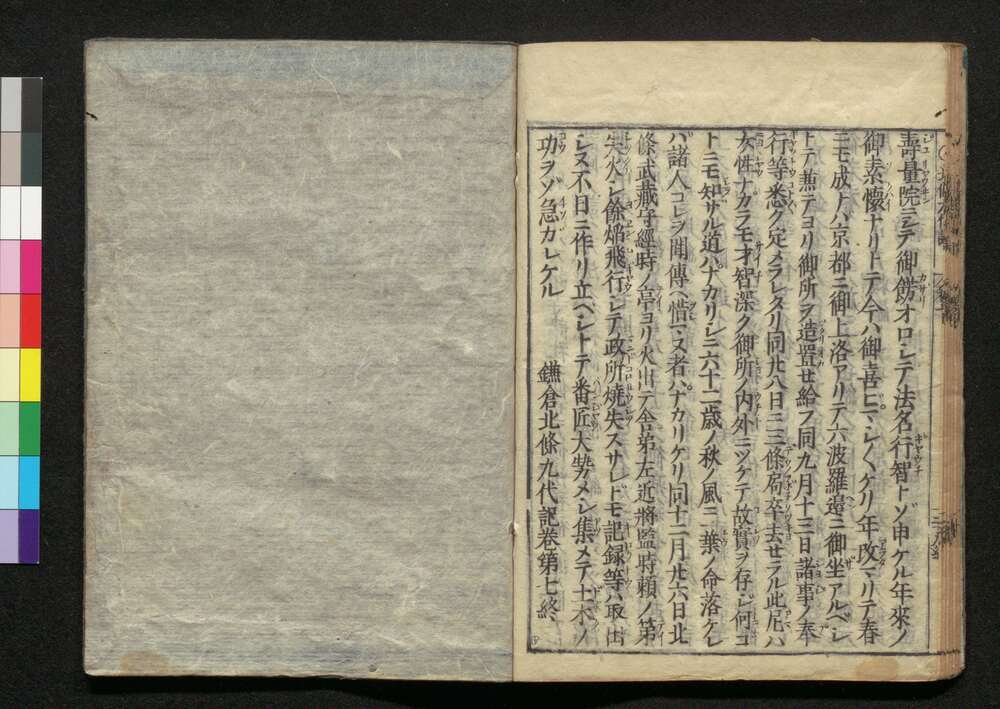 壽量院ニシテ御餝オロシテ法名行智トゾ申ケル年來ノ
御素懷ナリトテ今ハ御喜ヒマシ〱ケリ年改マリテ春
ニモ成ナハ京都ニ御上洛アリテ六波羅邉ニ御坐アルベシ
トテ兼テヨリ御所ヲ造畳せ給フ同九月十三日諸事ノ奉
行等悉ク定メラレタリ同廿八日ニ三條局卒去せラル此尼ハ
女性ナカラモ才智深ク御所ノ内外ニツケテ故實ヲ存シ何コ
トニモ知サル道ハナカリシニ六十二歳ノ秋ノ風ニ一葉ノ命落ケレ
バ諸人コレヲ聞傳ヘ惜マヌ者ハナカリケリ同十二月廿六日北
條武藏守經時ノ亭ヨリ火出テ舎弟左近將監時頼ノ第
失火シ餘焔飛行シテ政所焼失スサレドモ記録等ハ取出
シヌ不日ニ作リ立ベシトテ番匠大勢メシ集メテ土木ノ
功ヲゾ急ガレケル
鎌倉北條九代記卷第七終